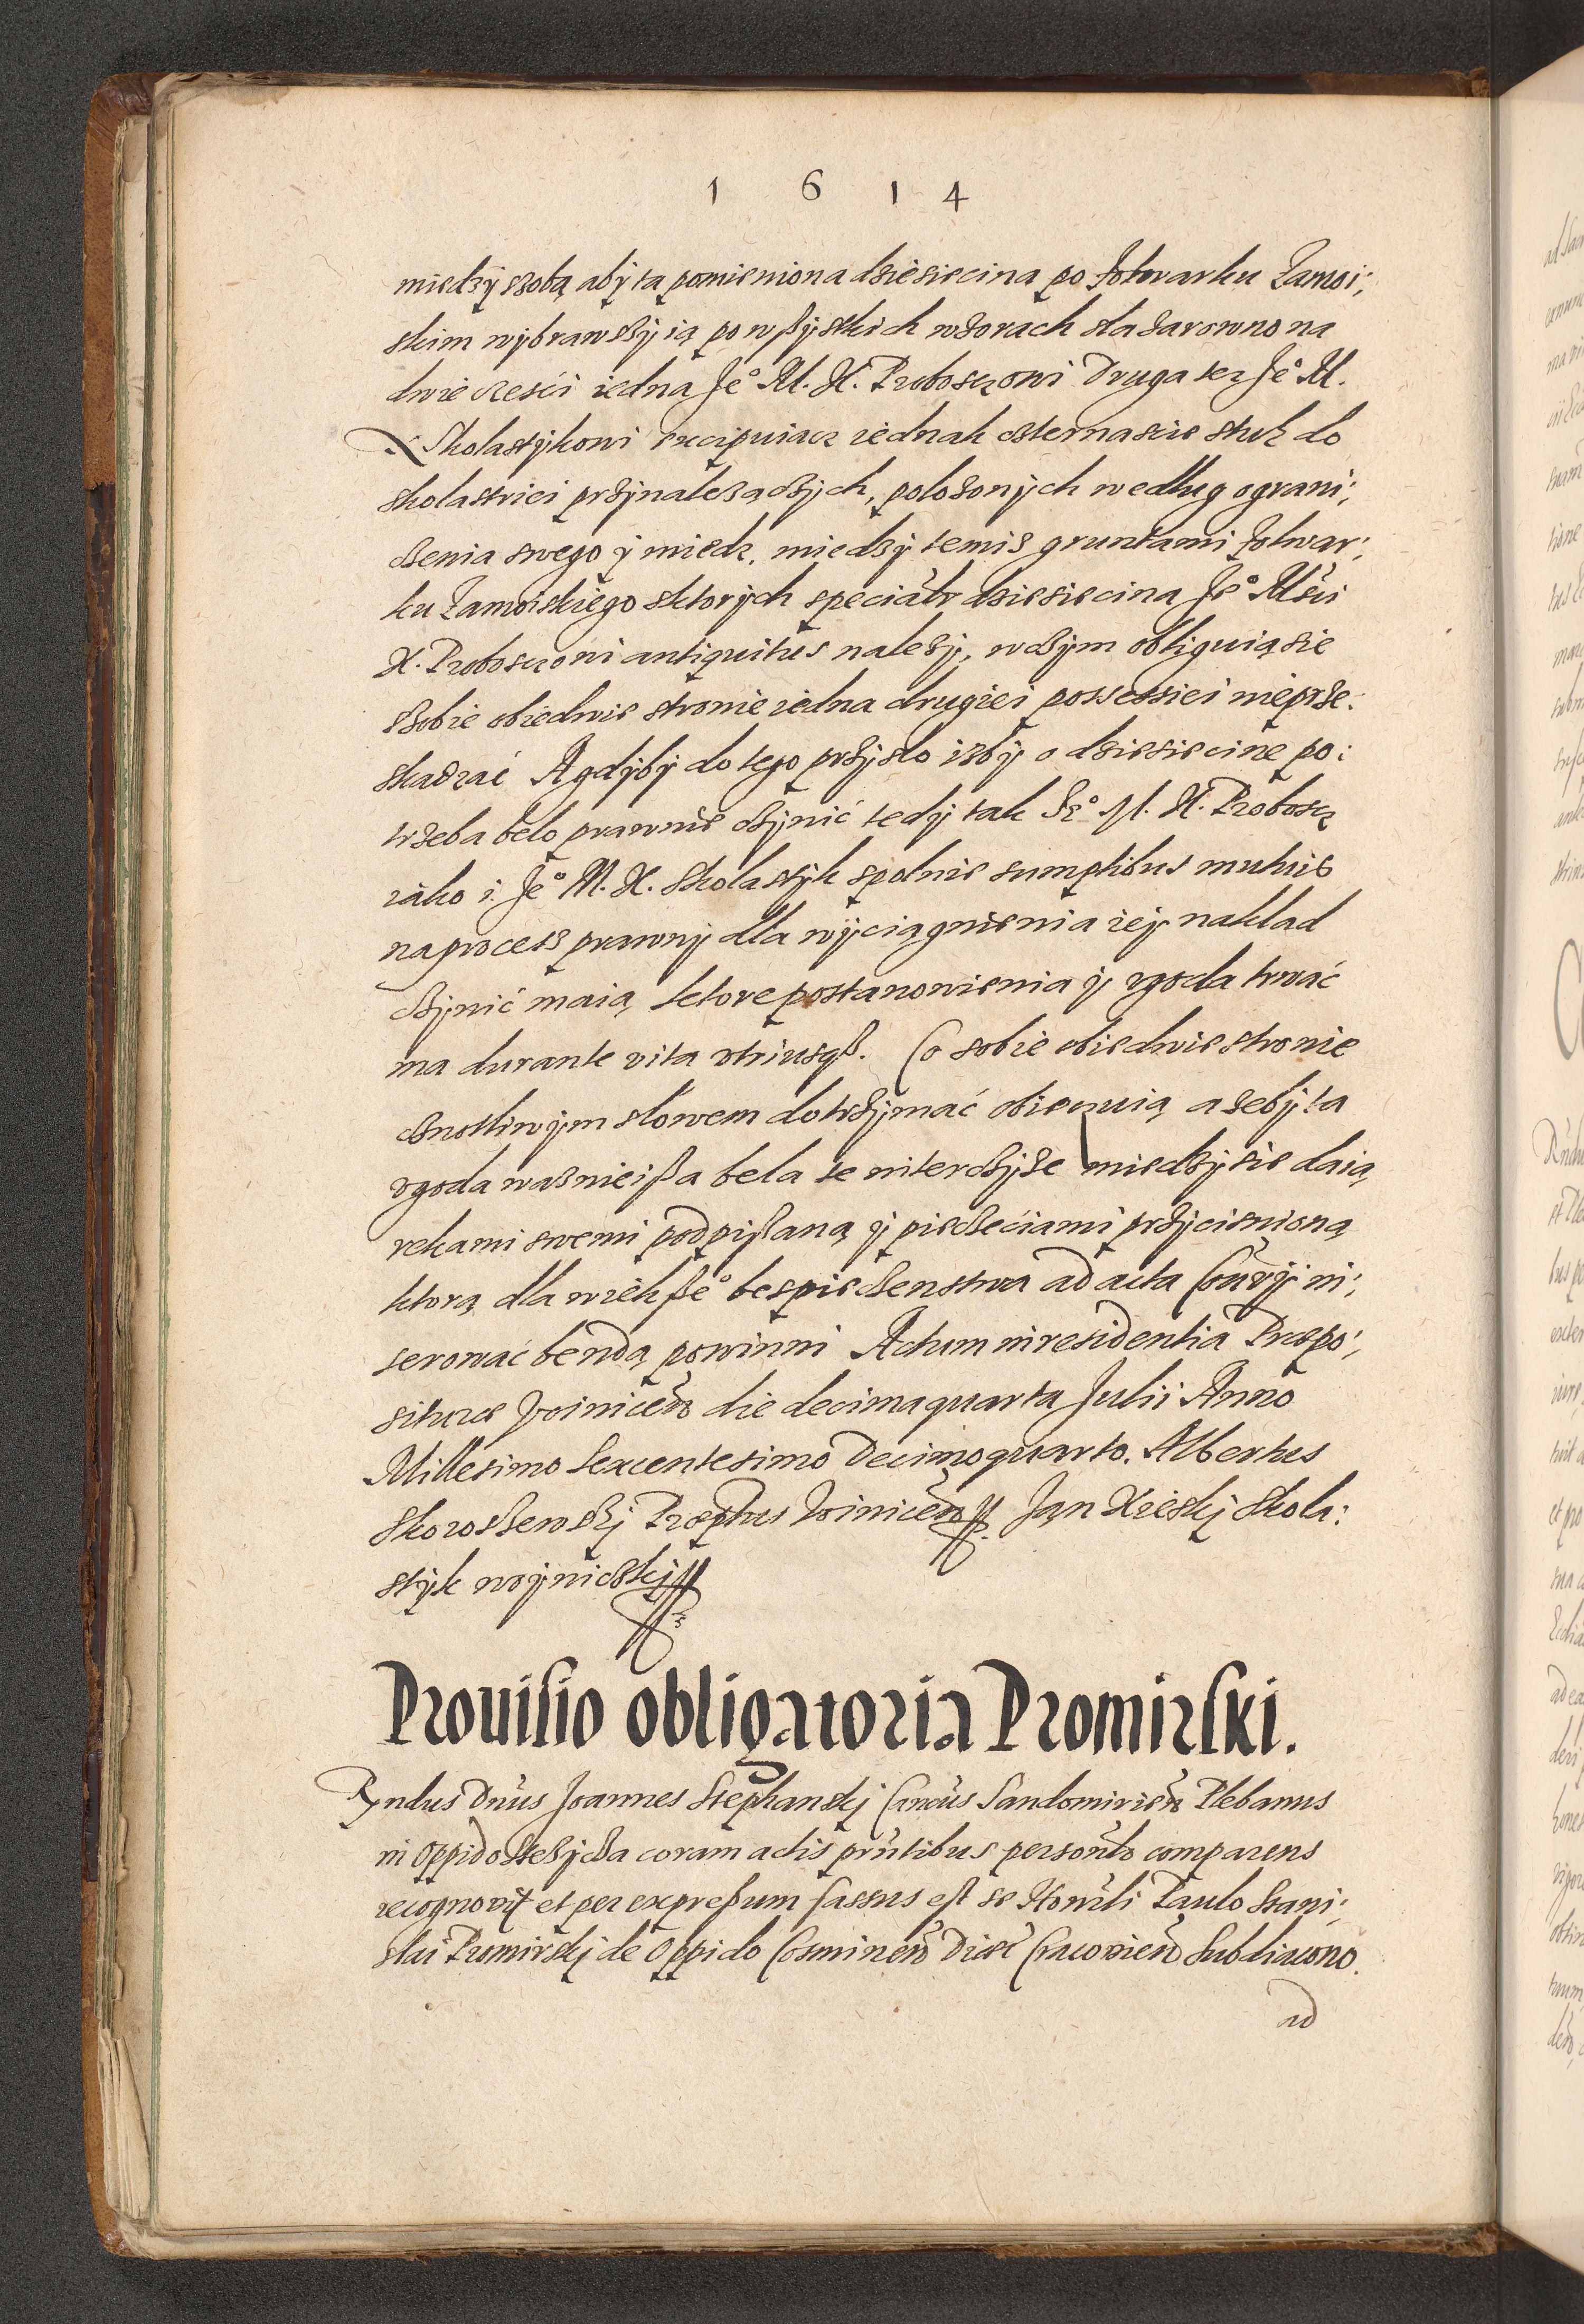 1 6 1 4
miedzÿ szobą abÿ ta pomieniona dziesiecina po Folwarku Zamoi:
skim wÿbrawszÿ ią po wßÿstkich wzorach sla zarowno na
dwie cześći iedna Je° M. X. Proboszczowi Druga tez Je° M.
X Skolastÿkowi excipuiacz iednak czternascie stuk do
skolastriei przÿnalezaczÿch, polozonÿch wedlug ograni:
czenia swego ÿ miedz. miedzÿ temis gruntami Folwar:
ku Zamoiskiego sktorÿch speciałr dziesiecina Je° Mści
X. Proboszczowi antiquitus nalezÿ, wczÿm obliguią sie
szobie obiedwie stronie iedna drugiei possessiei nieprze:
skadzać A gdÿbÿ do tego przÿslo izbÿ o dziesiecine po:
trzeba belo prawnie czÿnić tedÿ tak Je° M. X. Proboscz
iako i Je° M. X. Skolastÿk spolnie sumptibus mutuis
na process prawnÿ dla wÿciągnienia ieÿ naklad
czÿnić maią, ktore postanowienia ÿ zgoda trwać
ma durante vita vtriusqß. Co sobie obiedwie stronie
cznotliwÿm slowem dotrzÿmać obiecuią a zebÿ ta
zgoda waznieißa bela te intercÿze miedzÿ sie daią
rekami swemi podpißaną ÿ pieczećiami przÿcisnioną
ktorą dla wiekße° bespieczenstwa ad acta Conrÿ in:
serować bendą powinni Actum in residentia Præpo:
situræ Voinicen die decimaquarta Julii Anno
Millesimo Sexcentesimo Decimoquarto. Albertus
Skoroszewskÿ Præptus Voinicen Jan Xieskj Skola:
stÿk woÿniczkj
Prouisio obligatoria Promirski.
Rndus Dnus Joannes Stephanskj Cancus Sandomirien Plebanus
in Oppido Stezÿcza coram actis prntibus personlr comparens
recognovit et per expreßum fassus est se Honrli Paulo Stani:
slai Pumirskj de Oppido Cosminen Diæc Cracovien Subdiacono.
ad